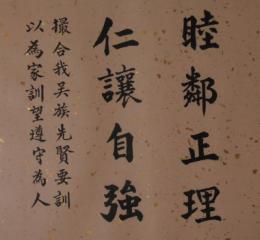 睦鄰正理
仁讓自強
撮合我吴族先賢要訓
以為家訓望遵守為人